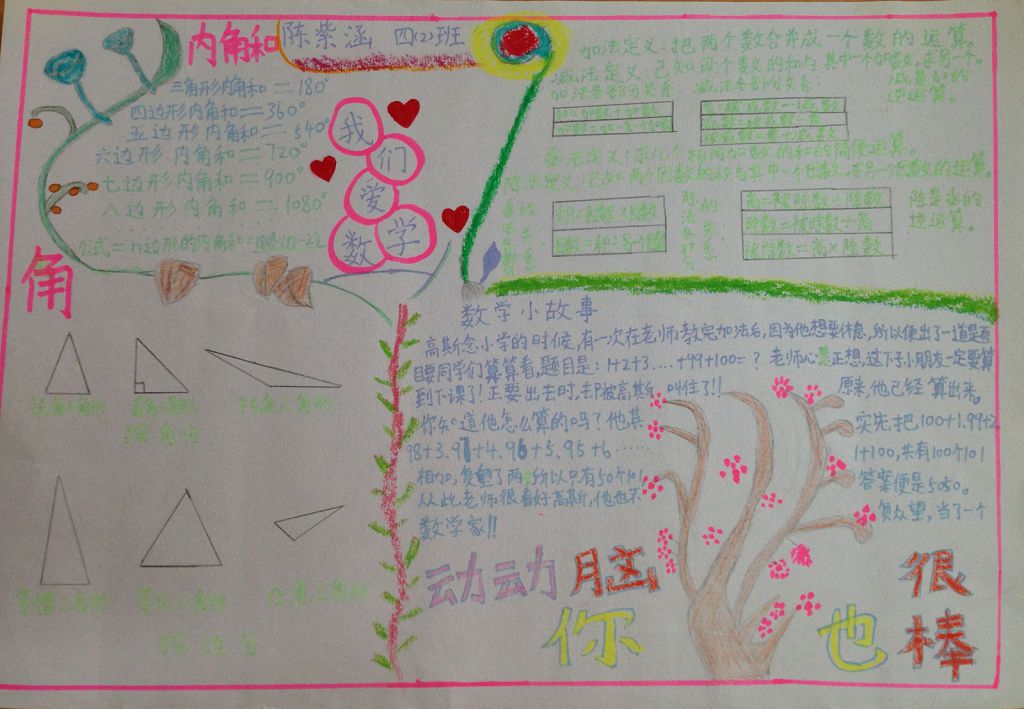 内角和
陈紫涵 四(2)班
三角形内角和=180°
四边形内角和=360°
五边形内角和=540°
六边形内角和=720°
七边形内角和=900°
八边形内角和=1080°
公式=n边形的内角和=180°(n-2)
我们爱数学
加法定义:把两个数合并成一个数的运算。
减法定义:已知两个数的和与其中一个加数,求另一个。
加法各部分关系: 减法各部分关系:
减是加的逆运算。
乘法定义:求几个相同加数的和的简便运算。
除法定义:已知两个因数的积与其中一个因数,求另一个因数的运算。
积=因数×因数
因数=积÷另一个因数
商=被除数÷除数
除数=被除数÷商
被除数=商×除数
除是乘的逆运算。
角
锐角三角形 直角三角形 钝角三角形
按角分
等腰三角形 等边三角形 任意三角形
按边分
数学小故事
高斯念小学的时候,有一次在老师教完加法后,因为他想要休息,所以便出了一道题
目要同学们算算看,题目是:1+2+3....+99+100=? 老师心里正想,这下子小朋友一定要算
到下课了!正要出去时,却被高斯叫住了!! 原来,他已经算出来,
你知道他怎么算的吗?他其 实先把100+1.99+2
98+3.97+4.96+5.95+6…… 1+100,共有100个101
相加,复重了两 所以只有50个101 答案便是5050。
从此老师很看好高斯,他也不 负众望,当了一个
数学家!!
动动脑 你也很棒